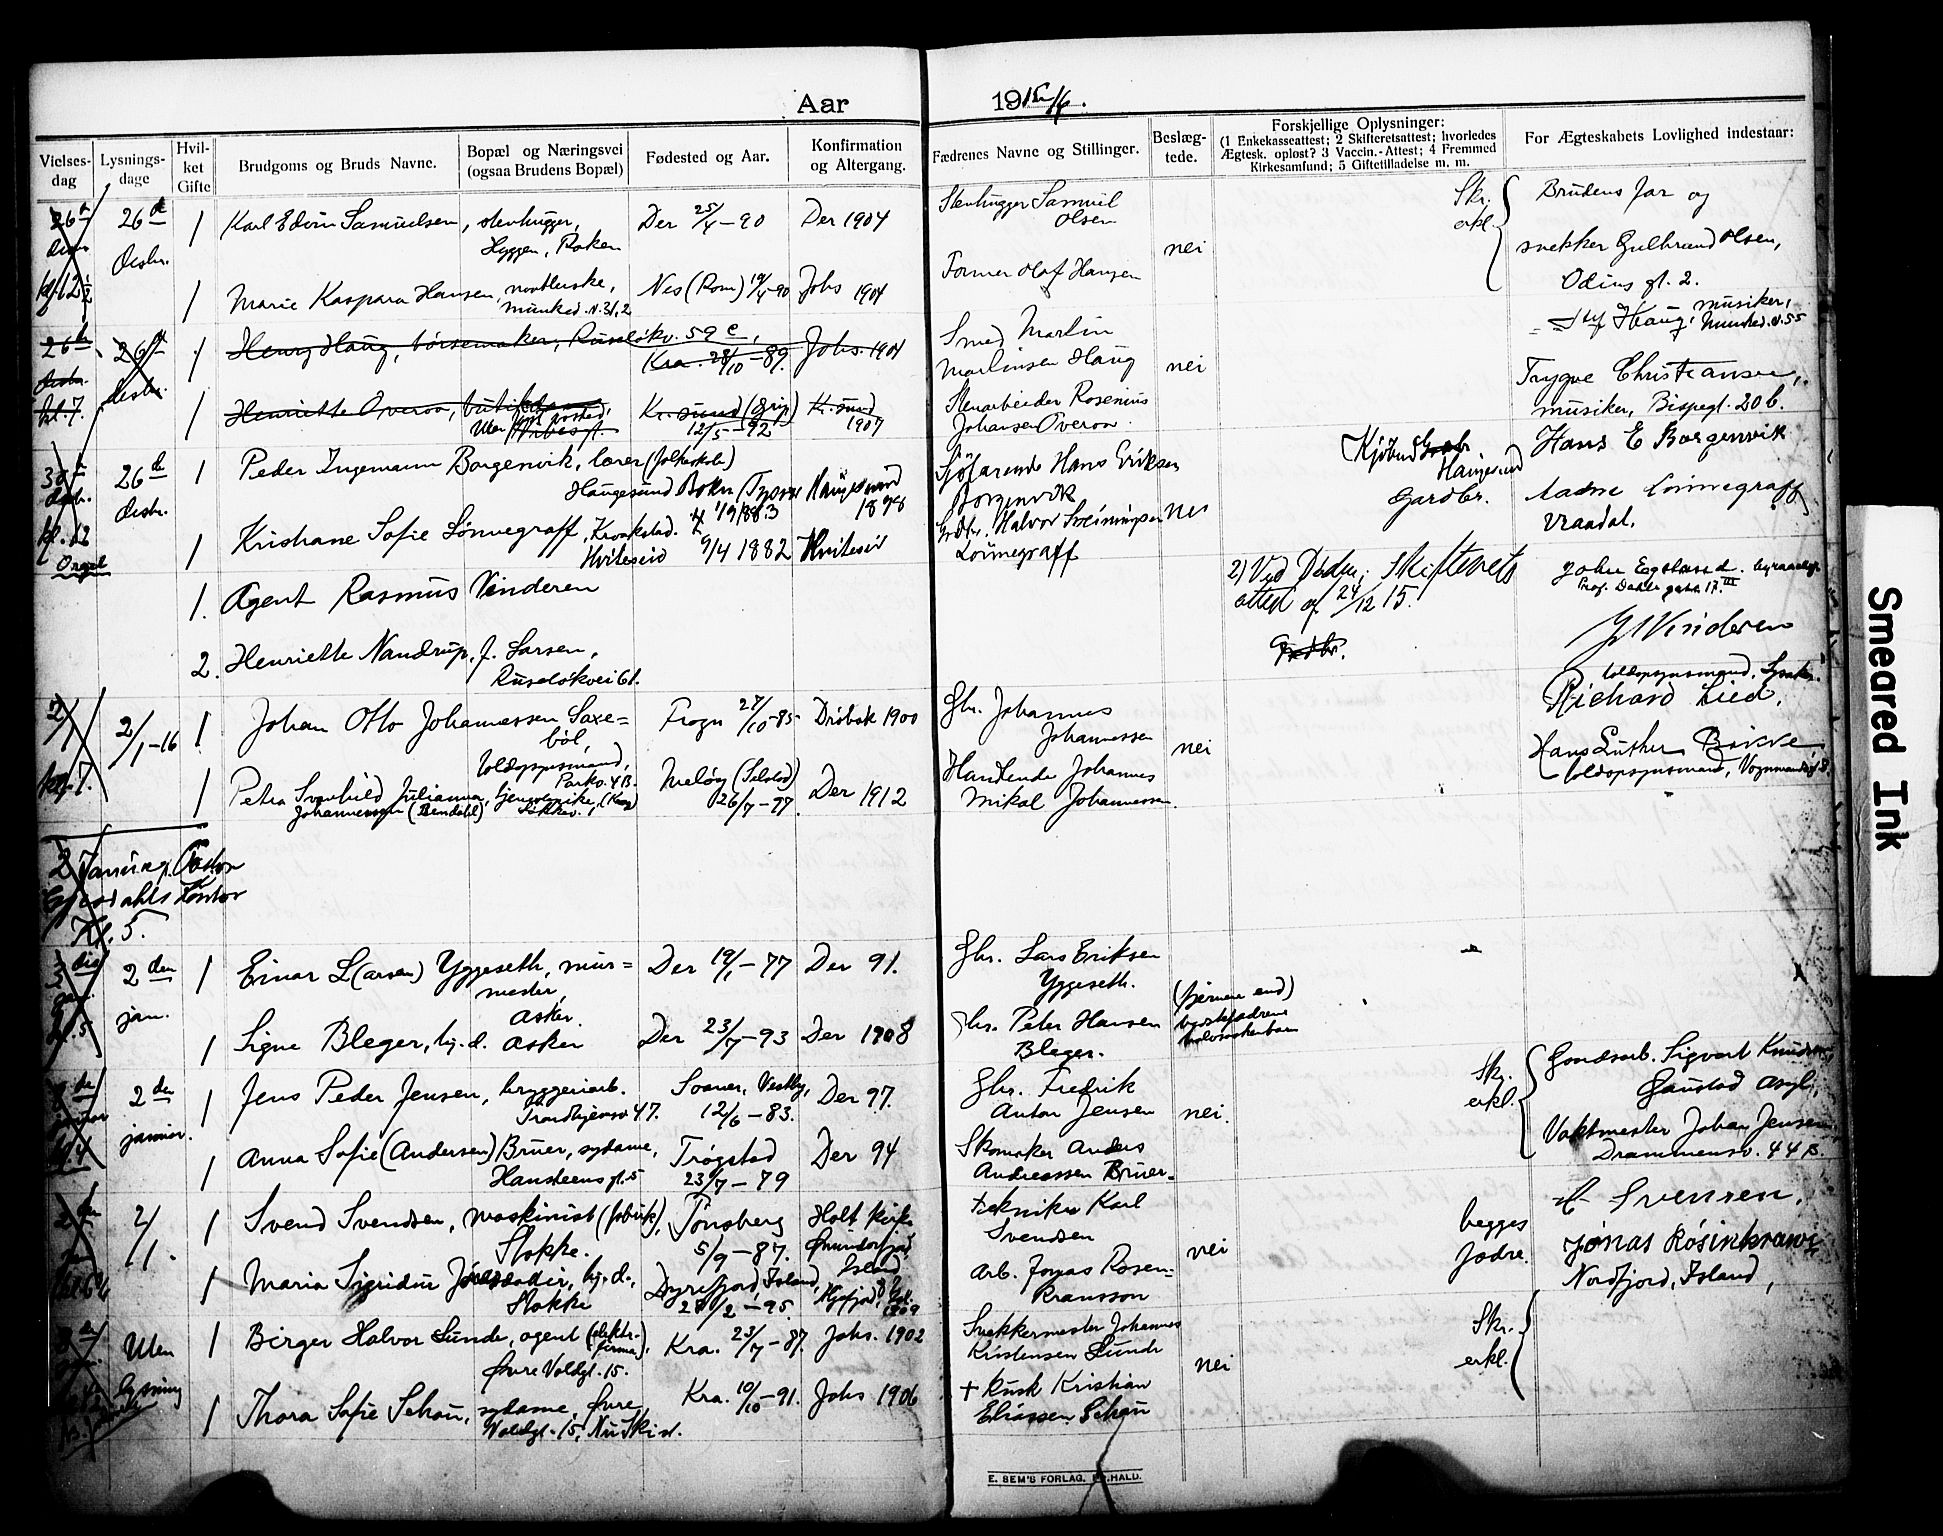 Aar 1915/16.
Vielses-dag
Lysnings-dage
Hvil-ket Gifte
Brudgoms og Bruds Navne.
Bopæl og Næringsvei (ogsaa Brudens Bopæl)
Fødested og Aar.
Konfirmation og Altergang.
Fædrenes Navne og Stillinger.
Beslæg-tede.
Forskjellige Oplysninger:
(1 Enkekasseattest; 2 Skifteretsattest; hvorledes
Ægtesk. opløst? 3 Vaccin.-Attest; 4 Fremmed
Kirkesamfund; 5 Giftetilladelse m. m.
For Ægteskabets Lovlighed indestaar:
26de desbr. kl. 12½
26de desbr.
1 Karl Edvin Samuelsen, stenhugger,
Hyggen, Røken
Der 25/4-90
Der 1904
Stenhugger Samuel
Olsen
nei
Skr. erkl.
Brudens far og
snekker Gulbrand Olsen,
Odins gt. 2.
1 Marie Kaspara Hansen,
Munked. v. 31, 2
Nes (Rom) 19/4-90
Johs 1904
Former Olaf Hansen
26de desbr. kl. 7.
26de desbr.
1 Henry Haug, børsemaker, Ruseløkv. 59 c,
Kra. 28/10-89.
Johs. 1904
Smed Martin
Martinsen Haug
nei
Haug, musiker,
Munked. v. 55
1 Henriette Overøn,
Uten
Kr.sund (Grip)
12/5-92
Kr.sund
1907
Stenarbeider Rosenius
Johansen Overøn.
Trygve Christiansen,
musiker, Bispegt. 20 b.
desbr. kl. 12
Orgel
26de desbr.
1 Peder Ingemann Borgenvik, lærer (folkeskole)
Haugesund
Bokn
1883
Haugesund
1898
Sjøfarende Hans Eriksen
Borgenvik
nei
Haugesund
Gardbr.
Hans E Borgenvik
1 Kristiane Sofie Lønnegraff,
Kviteseid
9/4 1882
Kviteseid
Grdbr. Halvor Sveinungsen
Lønnegraff
Aadne Lønnegraff
Vraadal.
1. Agent Rasmus Vinderen
2) Ved Døden; Skifterets
attest af 24/12 15.
John Egeland.
Prof. Dahls gate 17. III
2. Henriette Nandrup, f. Larsen,
Ruseløkvei 61.
Grdbr.
Vinderen
2/1 kl. 7.
2/1-16
1 Johan Otto Johannessen Saxe=
bøl,
toldopsynsmand,
Parkv. 4 B.
Frogn 27/10-85
Drøbak 1900
Gbr. Johannes
Johannessen
nei
toldopsynsmand, Lysaker.
Richard Lied,
1 Petra Svanhild Julianna
Johannessen (Bendahl)
tjenestepike,
Meløy (Selstad)
26/7-97.
Der 1912
Handlende Johannes
Mikal Johannessen.
Hans Luther
toldopsynsmand, Vognmandsgt 8.
2 Januar
Kontor
Kl. 5.
3die jan. kl. 5
2den jan.
1 Einar L(arsen) Yggeseth, mur=
mester,
Asker.
Der 19/1-77
Der 91.
Gbr. Lars Eriksen
Yggeseth.
(fjernere end)
1 Signe Bleger, hj. d. Asker
Der 23/7-93
Der 1908
Gbr. Peter Hansen
Bleger.
2den januar
1 Jens Peder Jensen, bryggeriarb.
Trondhjemsv 47.
Soner, Vestby,
12/6-83.
Der 97.
Gbr. Fredrik
Anton Jensen
nei.
Skr. erkl.
Gaardsarb. Sigvart Knudsen,
Gaustad Asyl,
1 Anna Sofie (Andersen) Bruer, sydame,
Hansteens gt. 5
Trøgstad
23/7-79
Der 94
Skomaker Anders
Andreassen Bruer.
Vaktmester Johan Jensen
Drammensv. 44 B.
2den jan.
2/1.
1 Svend Svendsen, maskinist (fabrik),
Stokke.
Tønsberg
5/9-87.
Holt kirke
Island
Tekniker Karl
Svendsen
nei
begges
fædre.
Svensen,
1 Maria Sigridur Jónasdottir, hj. d.,
Stokke
Dyrefjord, Island,
2-95.
1909
Arb. Jonas Rosen=
kransson
Jónas Rósinkranz
Nordfjord, Island,
Uten lysning
1 Birger Halvor Sunde, agent (elektr. firma),
Øvre Voldgt. 15.
Kra. 23/7-87.
Johs. 1902
Snekkermester Johannes
Kristensen Sunde
nei
Skr. erkl.
1 Thora Sofie Schau, sydame, Øvre
Voldgt. 15, Nu Ski st.
Kra. 10/10-91.
Johs 1906
+ Kusk Kristian
Eliassen Schau
E. SEM'S FORLAG. FR.HALD.
Smeared Ink